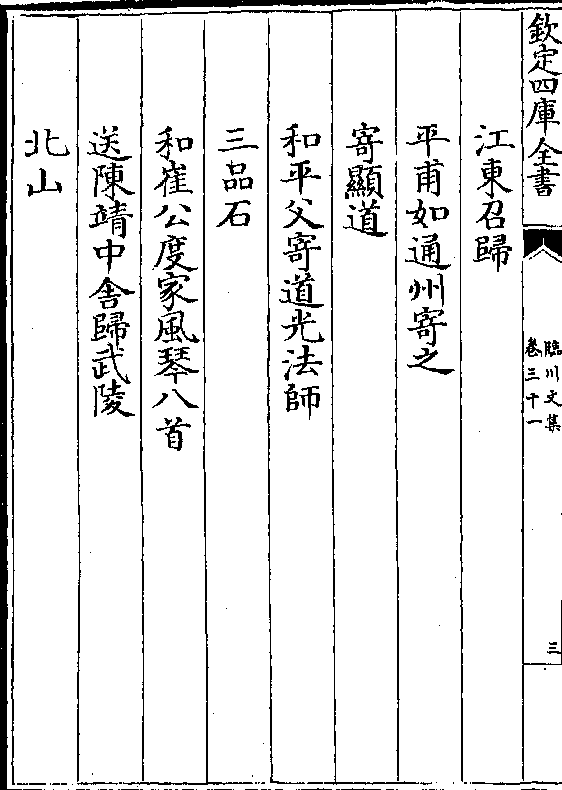 欽定四庫全書
臨川文集
卷三十一
三
江東召歸
平甫如通州寄之
寄顯道
和平父寄道光法師
三品石
和崔公度家風琴八首
送陳靖中舎歸武陵
北山